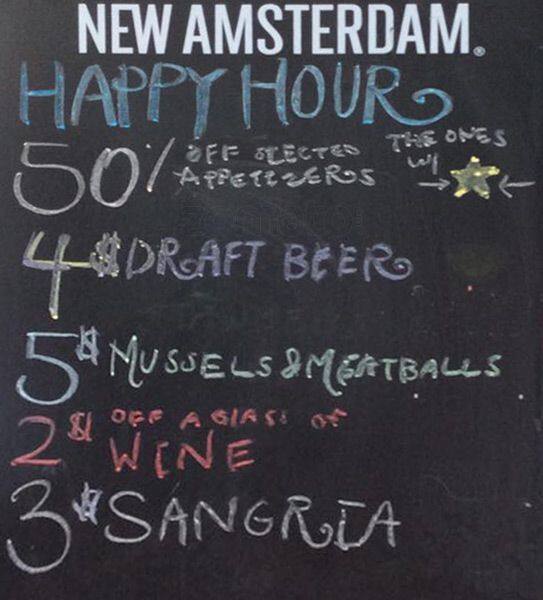 NEW AMSTERDAM®
HAPPY HOUR
50% OFF SELECTED APPETIZERS THE ONES W/
4$ DRAFT BEER
5$ MUSSELS & MEATBALLS
2$ OFF A GLASS OF
WINE
3$ SANGRIA